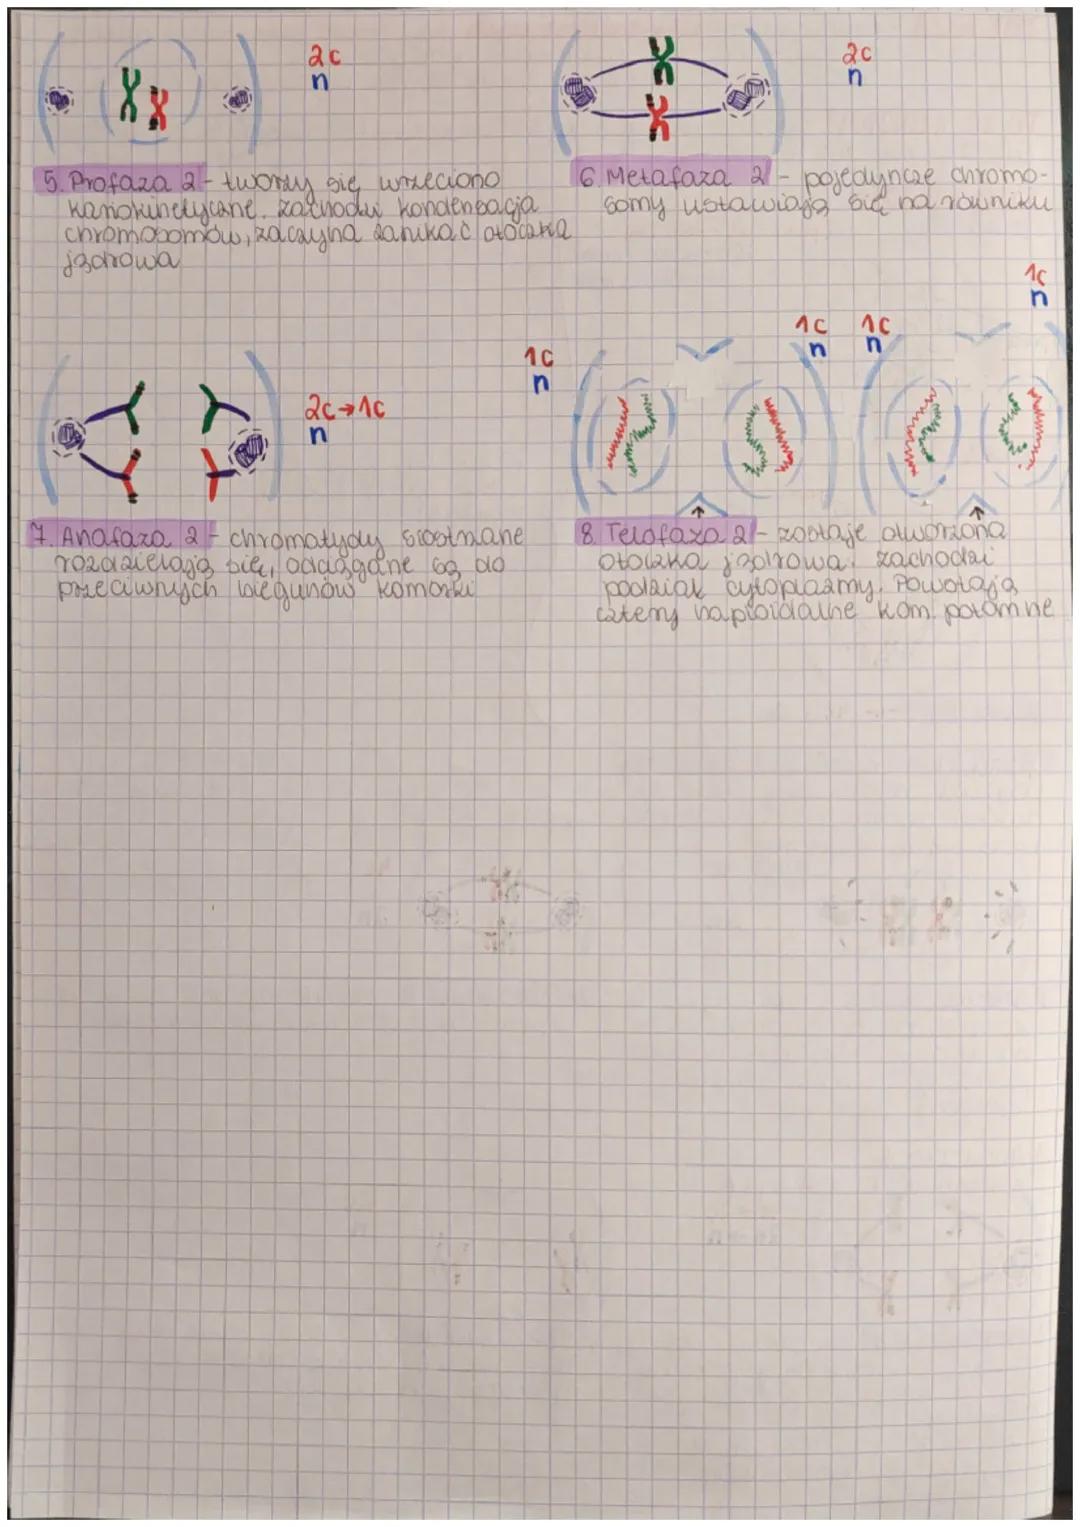 2c
n
2c
n
5. Profaza 2 - tworzy się wrzeciono
kariokinetyczne. zachodzi kondensacja
chromosomów, zaczyna zanikać otoczka
jądrowa
6. Metafaza 2 - pojedyncze chromo-
somy ustawiają się na równiku
2c→1c
n
1c
n
1c
n
1c
n
1c
n
7. Anafaza 2 - chromatydy siostrzane
rozdzielają się, odciągane są do
przeciwnych biegunów komórki
8. Telofaza 2 - zostaje otworzona
otoczka jądrowa. zachodzi
podział cytoplazmy. Powstają
cztery haploidalne kom. potomne